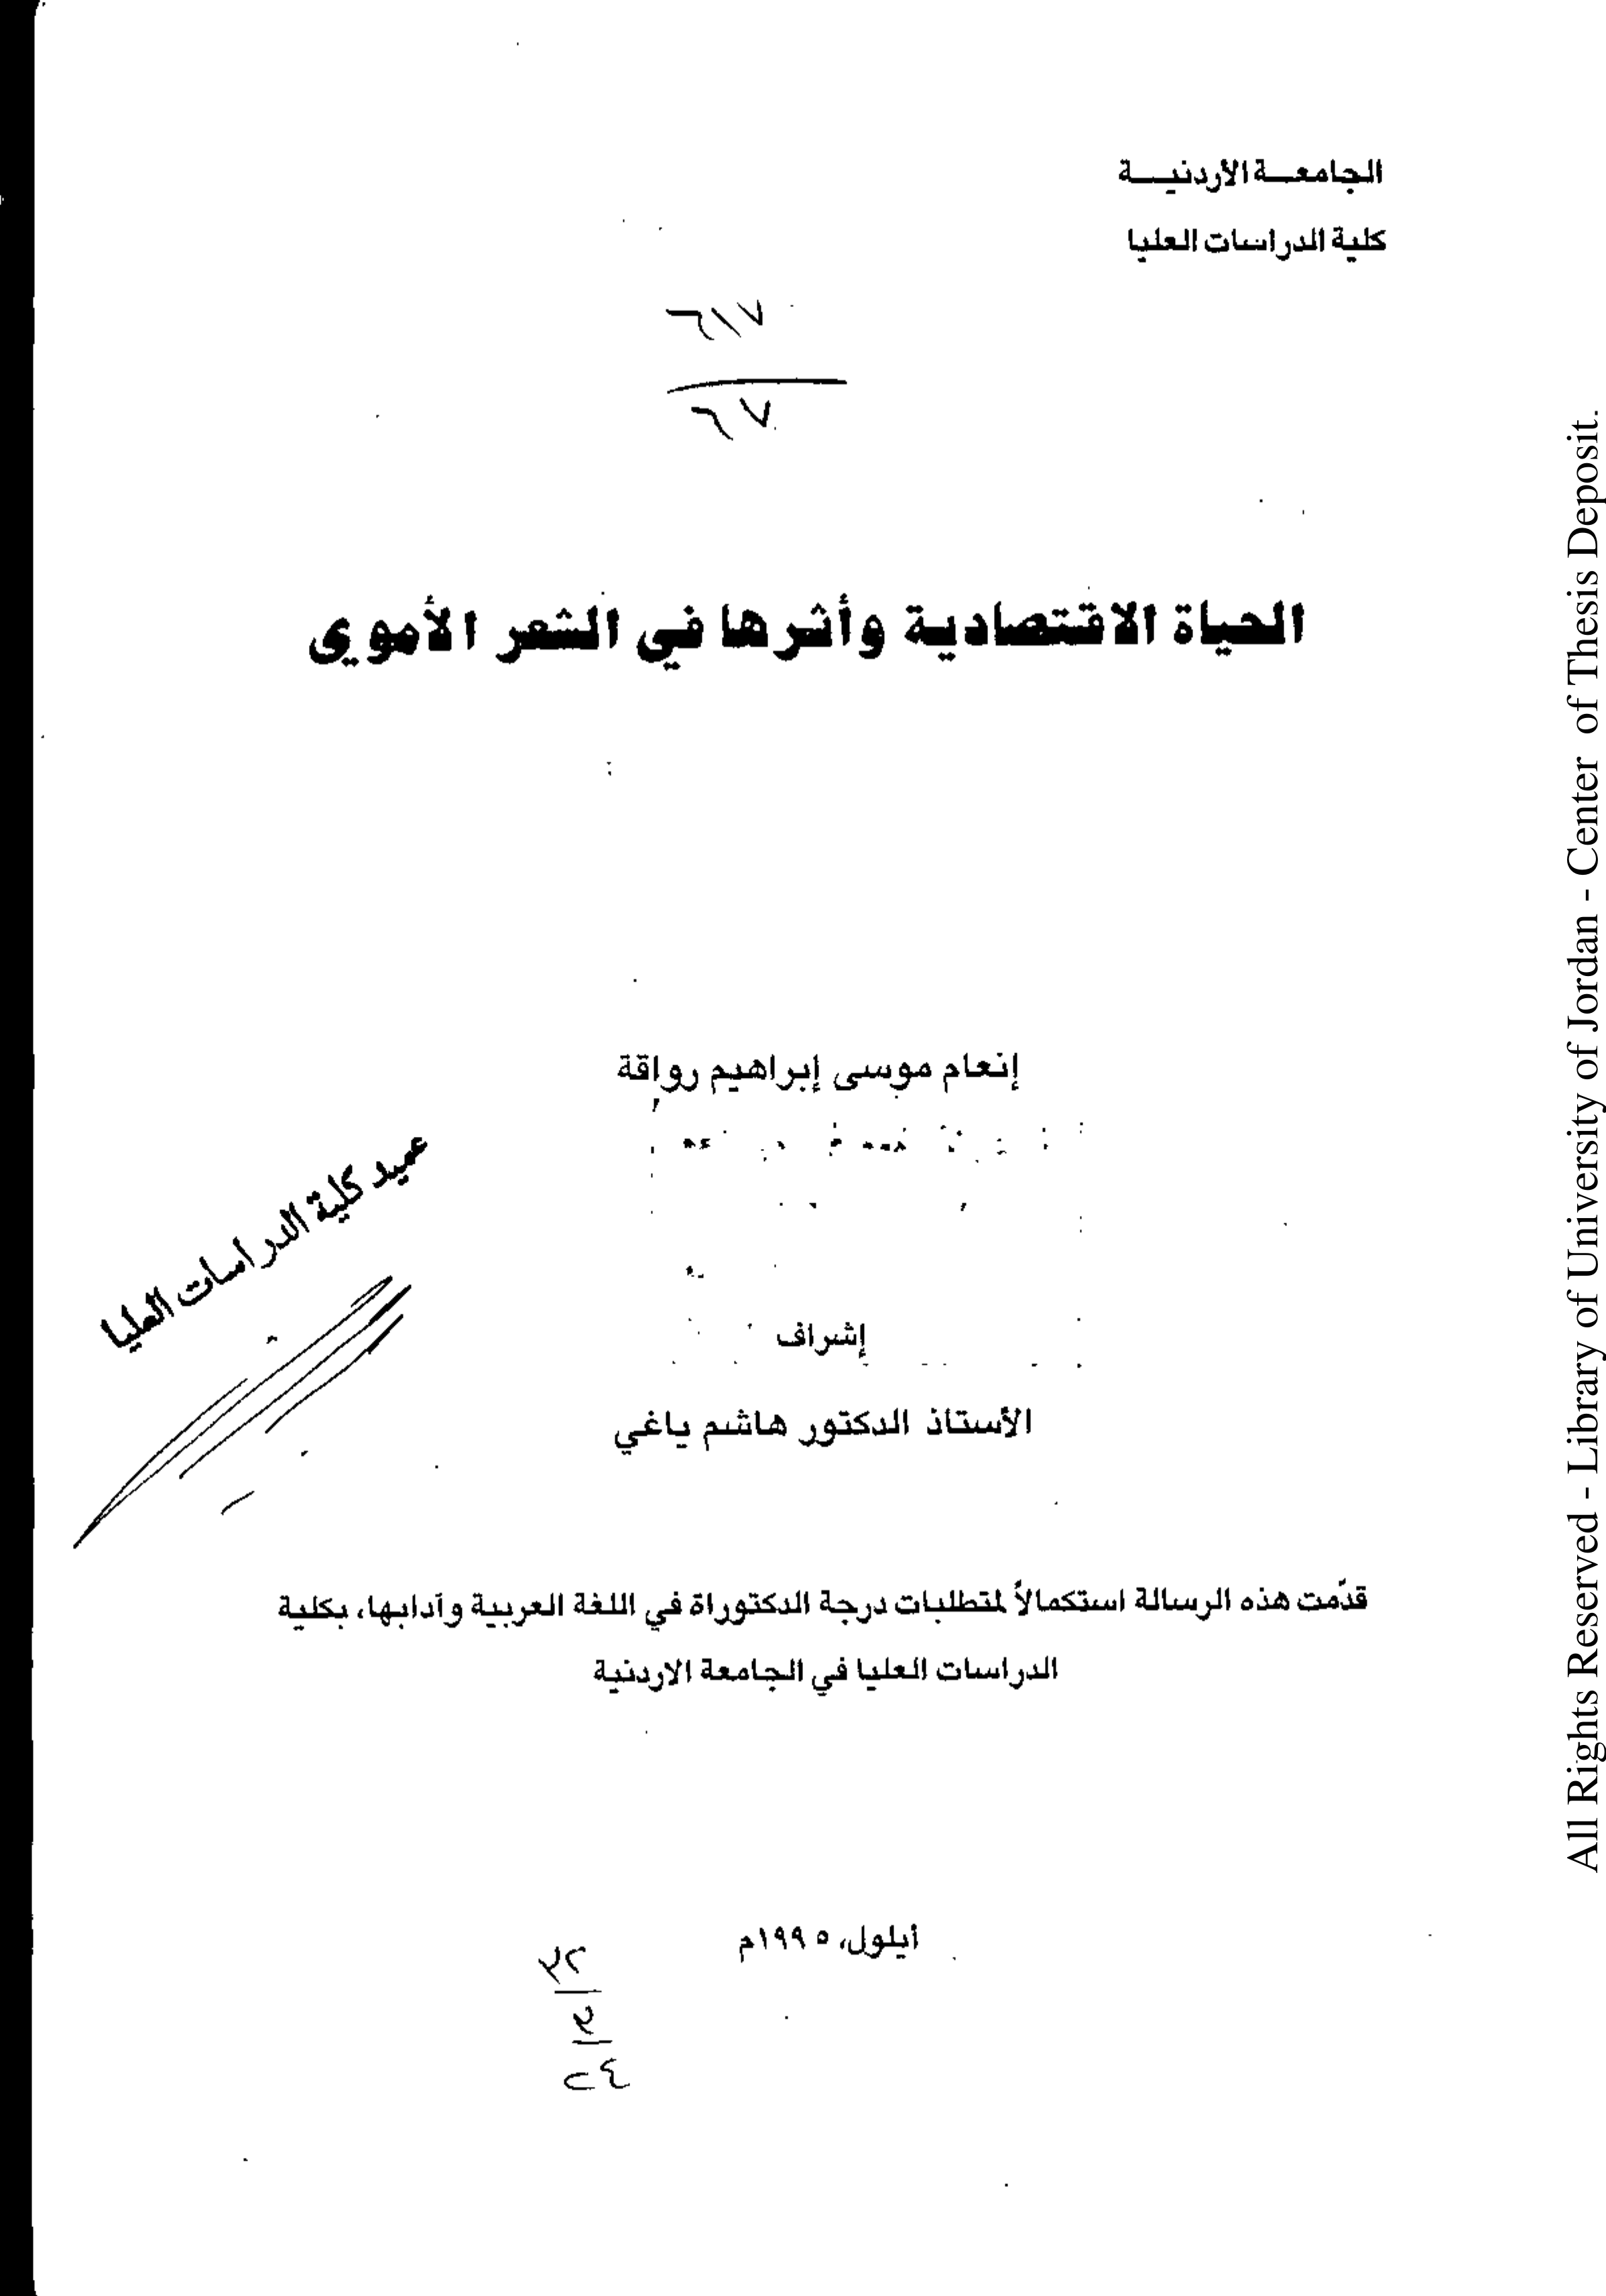 الجامعة الاردنية
كلية الدراسات العليا
٦١٧
٦٧
الحياة الاقتصادية وأثرها في الشعر الأموي
إنعام موسى إبراهيم رواقة
عميد كلية الدراسات العليا
إشراف
الأستاذ الدكتور هاشم ياغي
قدّمت هذه الرسالة استكمالاً لمتطلبات درجة الدكتوراة في اللغة العربية وآدابها، بكلية
الدراسات العليا في الجامعة الاردنية
أيلول، ١٩٩٥م
All Rights Reserved - Library of University of Jordan - Center of Thesis Deposit.